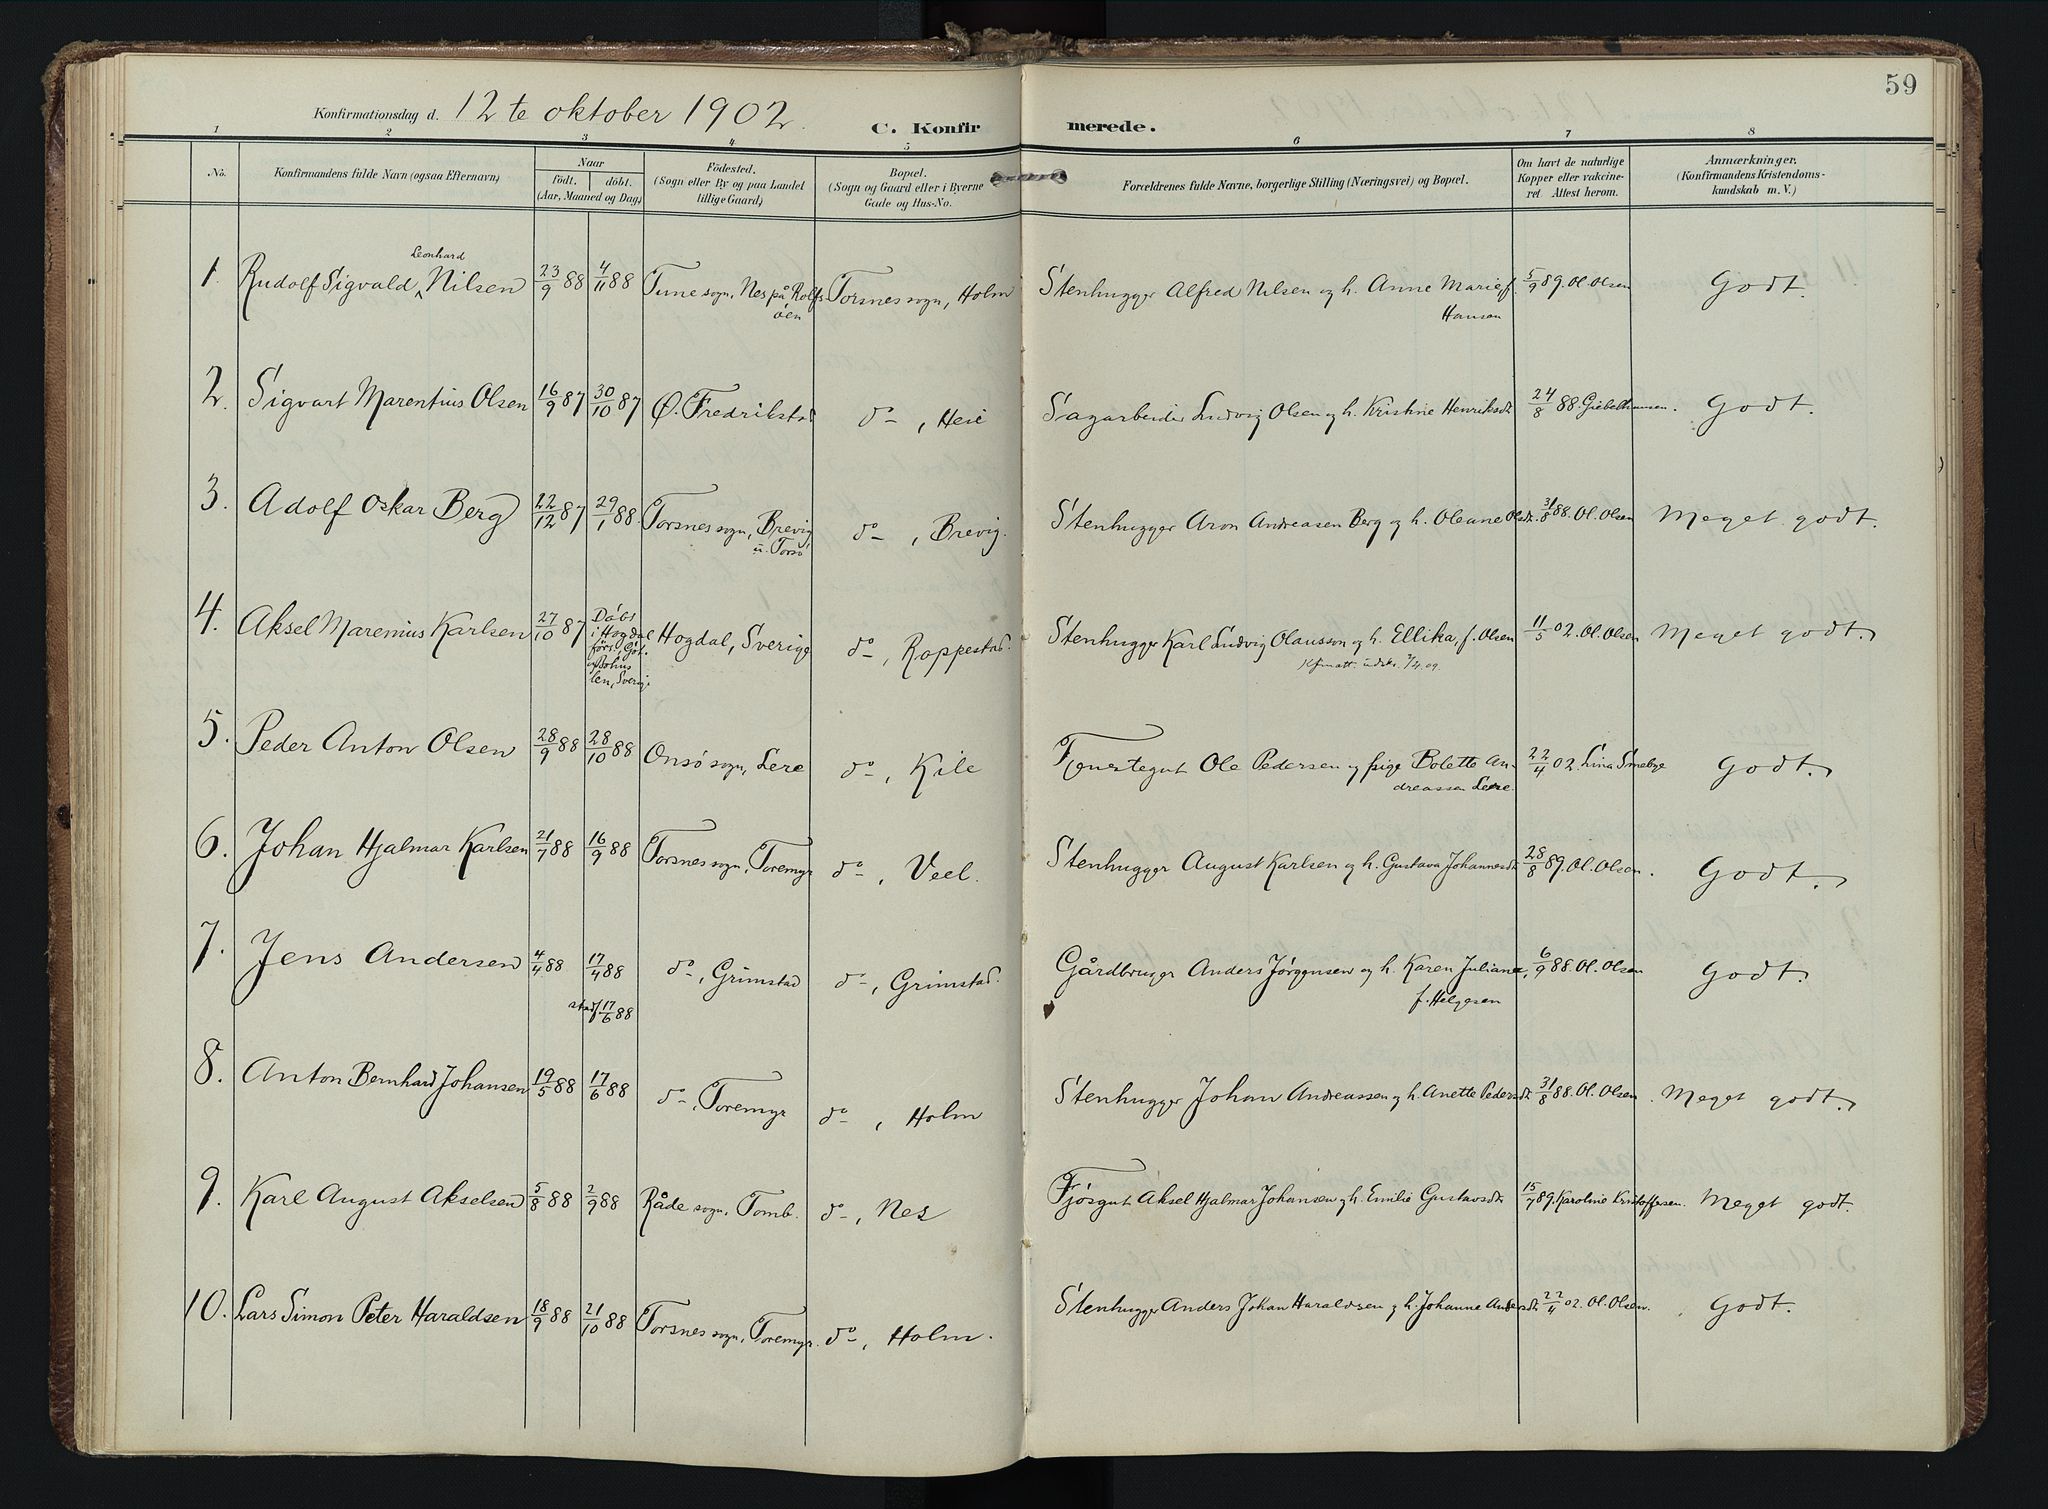 59
Konfirmationsdag d. 12te oktober 1902.
C. Konfirmerede.
1 2 3 4 5 6 7 8
No. Konfirmandens fulde Navn (ogsaa Efternavn) Naar födt. döbt. (Aar, Maaned og Dag) Födested. (Sogn eller By og paa Landet tillige Gaard) Bopæl. (Sogn og Gaard eller i Byerne Gade og Hus-No. Forældrenes fulde Navne, borgerlige Stilling (Næringsvei) og Bopæl. Om havt de naturlige Kopper eller vakcineret Attest herom. Anmærkninger. (Konfirmandens Kristendomskundskab m. V.)
1. Rudolf Sigvald Leonhard Nilsen 23/9 88 4/11 88 Tune sogn, Nes på Rolfsöen Torsnes sogn, Holm Stenhugger Alfred Nilsen og h. Anne Marie f. Hansen 5/9 89. Ol. Olsen Godt.
2. Sigvart Marentius Olsen 16/9 87 30/10 87 Ø. Fredrikstad do, Heie Sagarbeider Ludvig Olsen og h. Kristine Henriksdt. 24/8 88. Giebelhausen. Godt.
3. Adolf Oskar Berg 22/12 87 29/1 88. Torsnes sogn, Brevig u. Torsö do, Brevig. Stenhugger Aron Andreasen Berg og h. Oleane Olsdt. 31/8 88. Ol. Olsen Meget godt.
4. Aksel Maremius Karlsen 27/10 87 Döbt i Hogdal förs., Göt. og Bohus len, Sverige Hogdal, Sverige do, Roppestad. Stenhugger Karl Ludvig Olausson og h. Ellika, f. Olsen 11/5 02. Ol. Olsen Meget godt.
Kfmatt. udskr. 7/4 09
5. Peder Anton Olsen 28/9 88 28/10 88 Onsö sogn, Lere do, Kile Tjenestegut Ole Pedersen og pige Bolette Andreassen Leere. 22/4 02. Lina Smebye Godt.
6. Johan Hjalmar Karlsen 21/7 88 16/9 88 Torsnes sogn, Toremyr do, Veel. Stenhugger August Karlsen og h. Gustava Johannesdt. 28/8 89. Ol. Olsen. Godt.
7. Jens Andersen 4/4 88 17/4 88 stadf. 17/6 88 do, Grimstad do, Grimstad. Gårdbruger Anders Jørgensen og h. Karen Juliane, f. Helgesen 6/9 88. Ol. Olsen Godt.
8. Anton Bernhard Johansen 19/5 88 17/6 88 do, Toremyr do, Holm Stenhugger Johan Andreassen og h. Anette Pedersdt. 31/8 88. Ol. Olsen. Meget godt.
9. Karl August Akselsen 5/8 88 2/9 88 Råde sogn, Tomb. do, Nes Fjösgut Aksel Hjalmar Johansen og h. Emilie Gustavsdt. 15/7 89. Karoline Kristoffersen. Meget godt.
10. Lars Simon Peter Haraldsen 18/9 88 21/10 88 Torsnes sogn, Toremyr. do, Holm. Stenhugger Anders Johan Haraldsen og h. Johanne Andersdt. 22/4 02. Ol. Olsen. Godt.